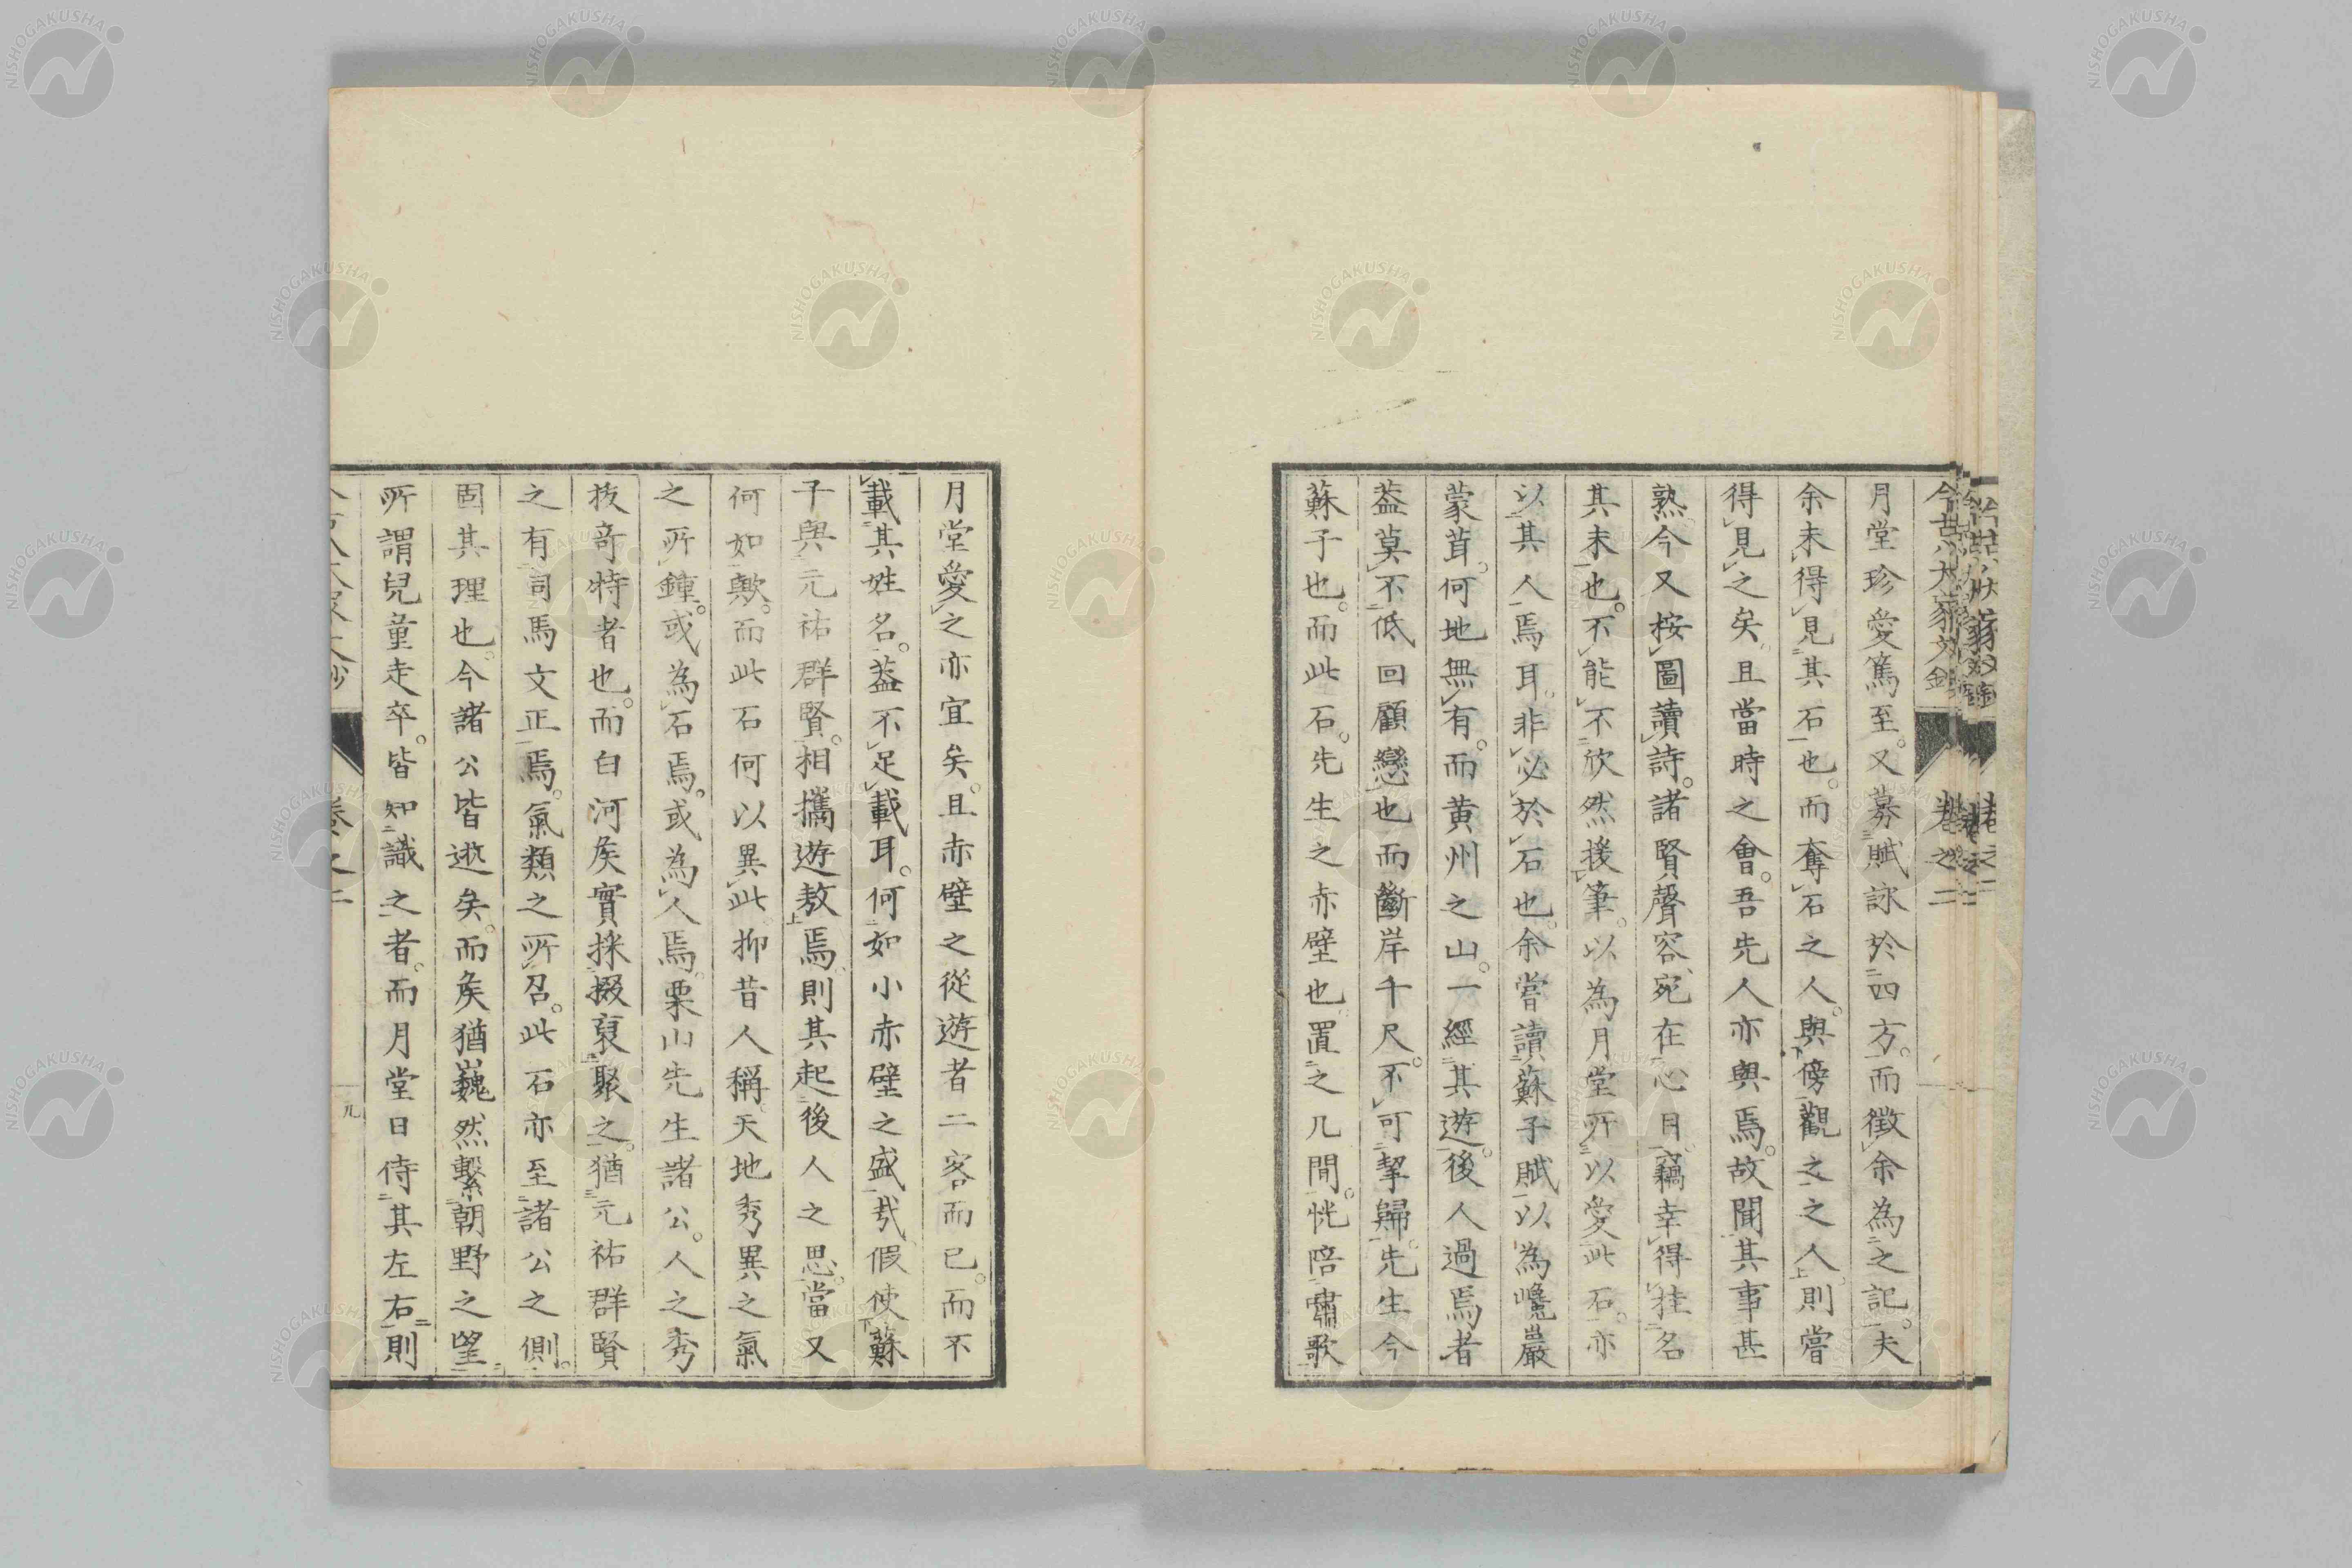 月堂珍愛篤至。又募賦詠於四方。而徴余為之記。夫
余未得見其石也。而奪石之人。與傍觀之之人。則嘗
得見之矣。且當時之會。吾先人亦與焉。故聞其事甚
熟。今又按圖讀詩。諸賢聲容。宛在心目。竊幸得挂名
其末也。不能不欣然援筆。以為月堂所以愛此石。亦
以其人焉耳。非必於石也。余嘗讀蘇子賦以為巉巖
蒙茸。何地無有。而黄州之山。一經其遊。後人過焉者
葢莫不低回顧戀也而斷岸千尺。不可挈歸。先生今
蘇子也。而此石。先生之赤壁也。置之几間。恍陪嘯歌
月堂愛之亦宜矣。且赤壁之從遊者二客而已。而不
載其姓名。葢不足載耳。何如小赤壁之盛哉。假使蘇
子與元祐群賢。相攜遊敖焉。則其起後人之思。當又
何如歟。而此石何以異此。抑昔人稱。天地秀異之氣
之所鍾。或為石焉。或為人焉。栗山先生諸公。人之秀
抜奇特者也。而白河矦實採掇裒聚之。猶元祐群賢
之有司馬文正焉。氣類之所召。此石亦至諸公之側。
固其理也。今諸公皆逝矣。而矦猶巍然繫朝野之望
所謂兒童走卒。皆知識之者。而月堂日侍其左右。則
卷之二
九